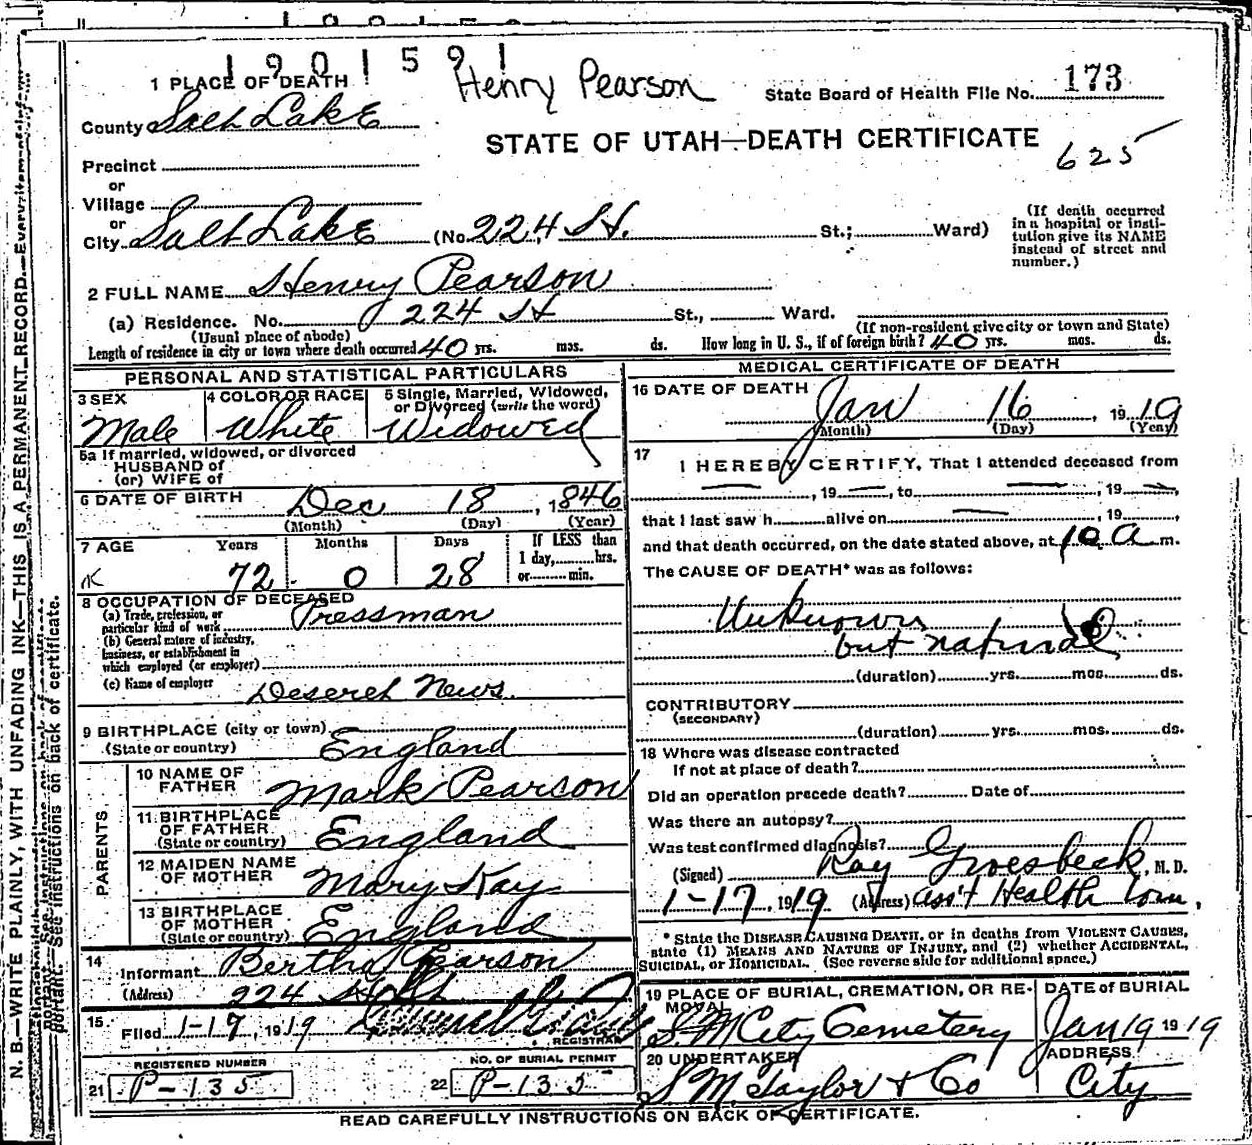 1901591
Henry Pearson
State Board of Health File No. 173
1 PLACE OF DEATH
County Salt Lake
STATE OF UTAH—DEATH CERTIFICATE
625
Precinct
or
Village
or
City Salt Lake (No. 224 H. St.; Ward)
(If death occurred
in a hospital or insti-
tution give its NAME
instead of street and
number.)
2 FULL NAME Henry Pearson
(a) Residence. No. 224 H St., Ward.
(Usual place of abode) (If non-resident give city or town and State)
Length of residence in city or town where death occurred 40 yrs. mos. ds. How long in U. S., if of foreign birth? 40 yrs. mos. ds.
PERSONAL AND STATISTICAL PARTICULARS
3 SEX
Male
4 COLOR OR RACE
White
5 Single, Married, Widowed,
or Divorced (write the word)
Widowed
5a If married, widowed, or divorced
HUSBAND of
(or) WIFE of
6 DATE OF BIRTH Dec 18, 1846
(Month) (Day) (Year)
7 AGE Years Months Days If LESS than
1 day, hrs.
72 0 28 or min.
8 OCCUPATION OF DECEASED
(a) Trade, profession, or
particular kind of work Pressman
(b) General nature of industry,
business, or establishment in
which employed (or employer)
(c) Name of employer Deseret News
9 BIRTHPLACE (city or town)
(State or country) England
PARENTS
10 NAME OF
FATHER Mark Pearson
11 BIRTHPLACE
OF FATHER
(State or country) England
12 MAIDEN NAME
OF MOTHER Mary Kay
13 BIRTHPLACE
OF MOTHER
(State or country) England
14
Informant Bertha Pearson
(Address) 224 H St
15
Filed 1-17, 1919
REGISTRAR
REGISTERED NUMBER
21 P-135
NO. OF BURIAL PERMIT
22 P-135
MEDICAL CERTIFICATE OF DEATH
16 DATE OF DEATH
Jan 16, 1919
(Month) (Day) (Year)
17
I HEREBY CERTIFY, That I attended deceased from
, 19 , to , 19 ,
that I last saw h alive on , 19 ,
and that death occurred, on the date stated above, at 10 a m.
The CAUSE OF DEATH* was as follows:
Unknown
but natural
(duration) yrs. mos. ds.
CONTRIBUTORY
(SECONDARY)
(duration) yrs. mos. ds.
18 Where was disease contracted
If not at place of death?
Did an operation precede death? Date of
Was there an autopsy?
Was test confirmed diagnosis?
(Signed) Ray Groesbeck, M. D.
1-17, 1919 (Address) ass't Health Com.
* State the DISEASE CAUSING DEATH, or in deaths from VIOLENT CAUSES,
state (1) MEANS AND NATURE OF INJURY, and (2) whether ACCIDENTAL,
SUICIDAL, or HOMICIDAL. (See reverse side for additional space.)
19 PLACE OF BURIAL, CREMATION, OR RE-
MOVAL
City Cemetery
DATE of BURIAL
Jan 19 1919
20 UNDERTAKER
S. M. Taylor & Co
ADDRESS
City
READ CAREFULLY INSTRUCTIONS ON BACK OF CERTIFICATE.
N. B.—WRITE PLAINLY, WITH UNFADING INK—THIS IS A PERMANENT RECORD. Every item of
See instructions on back of certificate.